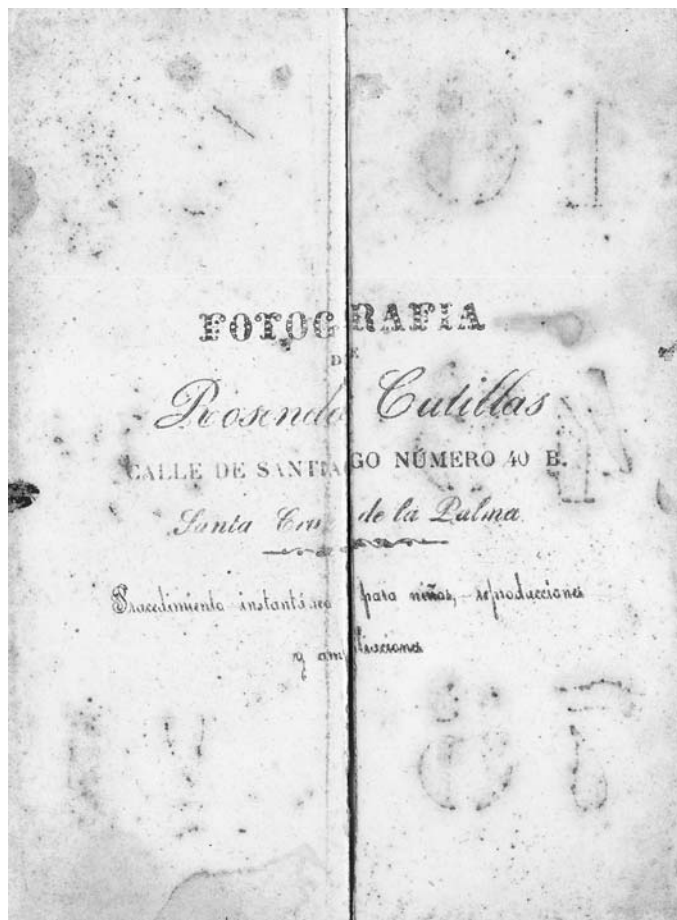 FOTOGRAFIA
DE
Rosendo Cutillas
CALLE DE SANTIAGO NÚMERO 40 B.
Santa Cruz de la Palma
Procedimiento instantáneo para niños, reproducciones
y ampliaciones